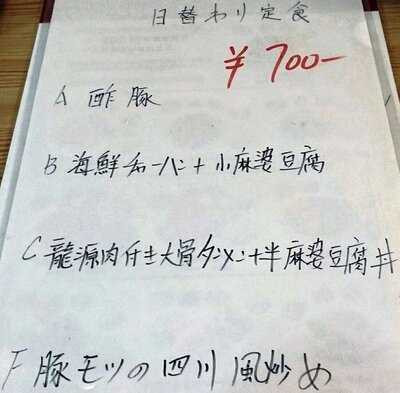 日替わり定食
¥700-
A 酢豚
B 海鮮チャーハン+小麻婆豆腐
C 龍源肉付き大骨タンメン+半麻婆豆腐丼
F 豚モツの四川風炒め